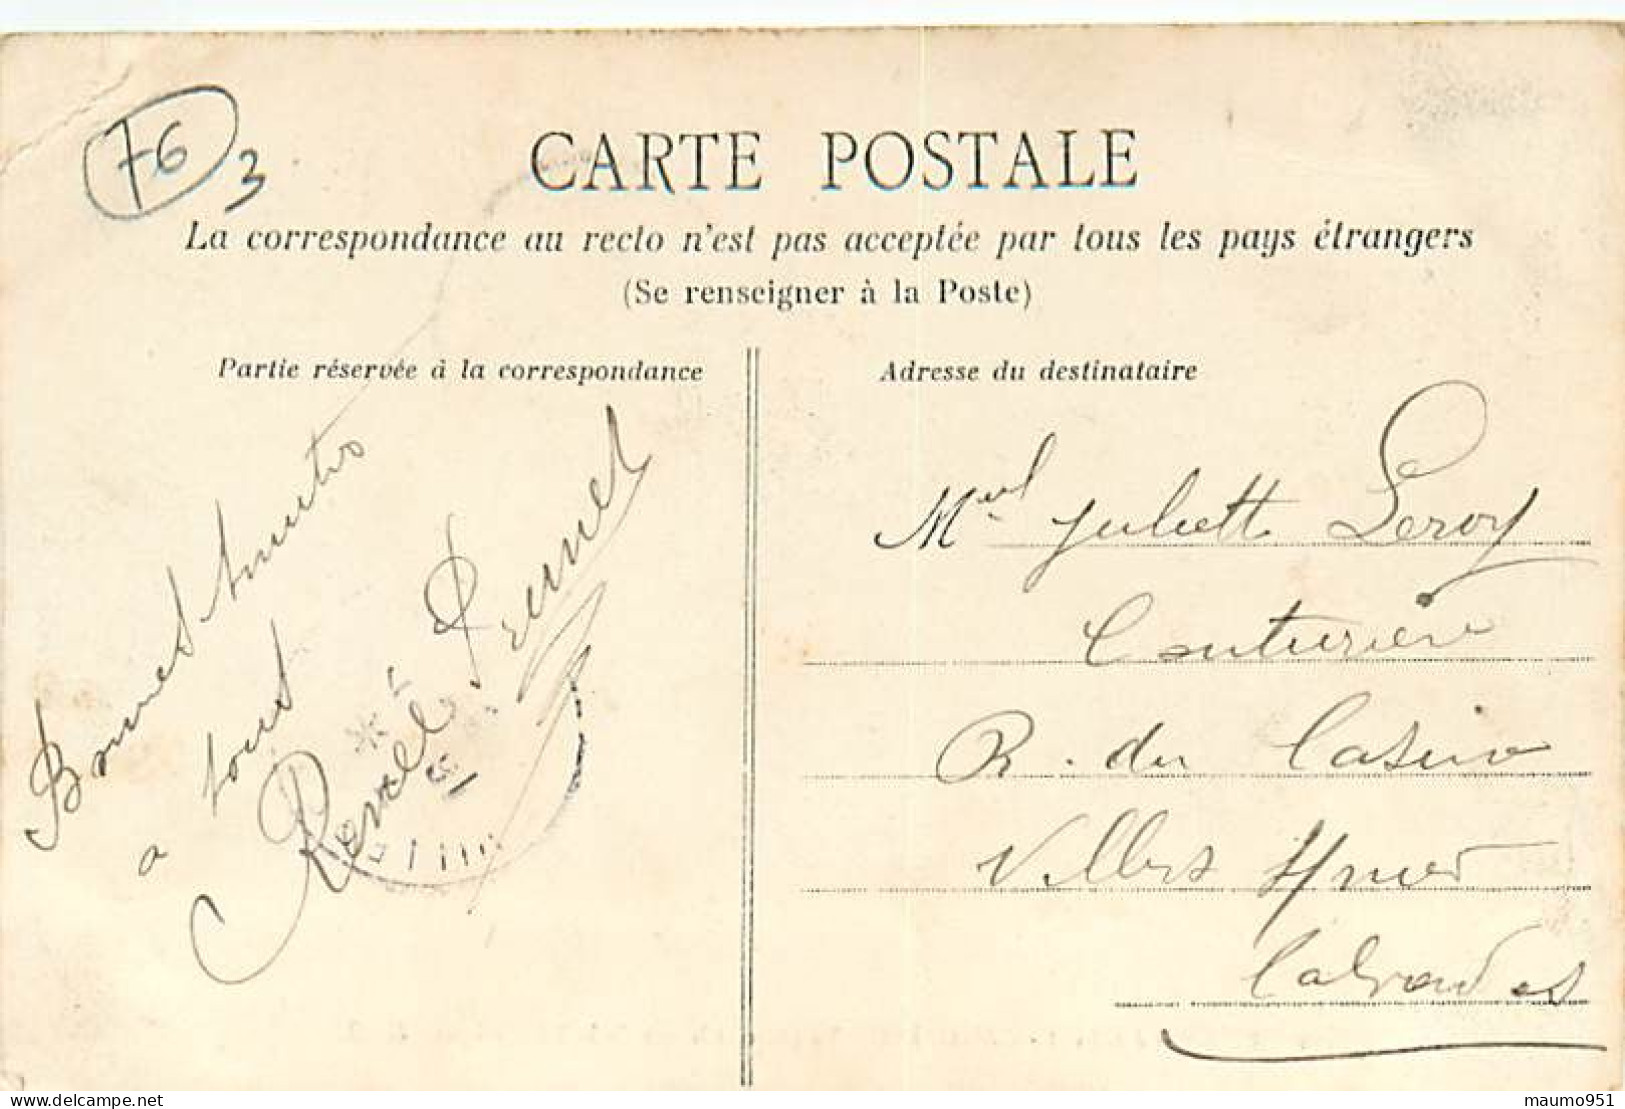 76
3
CARTE POSTALE
La correspondance au recto n'est pas acceptée par tous les pays étrangers
(Se renseigner à la Poste)
Partie réservée à la correspondance
Adresse du destinataire
Bonnes
à tous
Mel Juliett Leroy
Couturière
R. du Casino
Villers s/mer
Calvados
maumo951